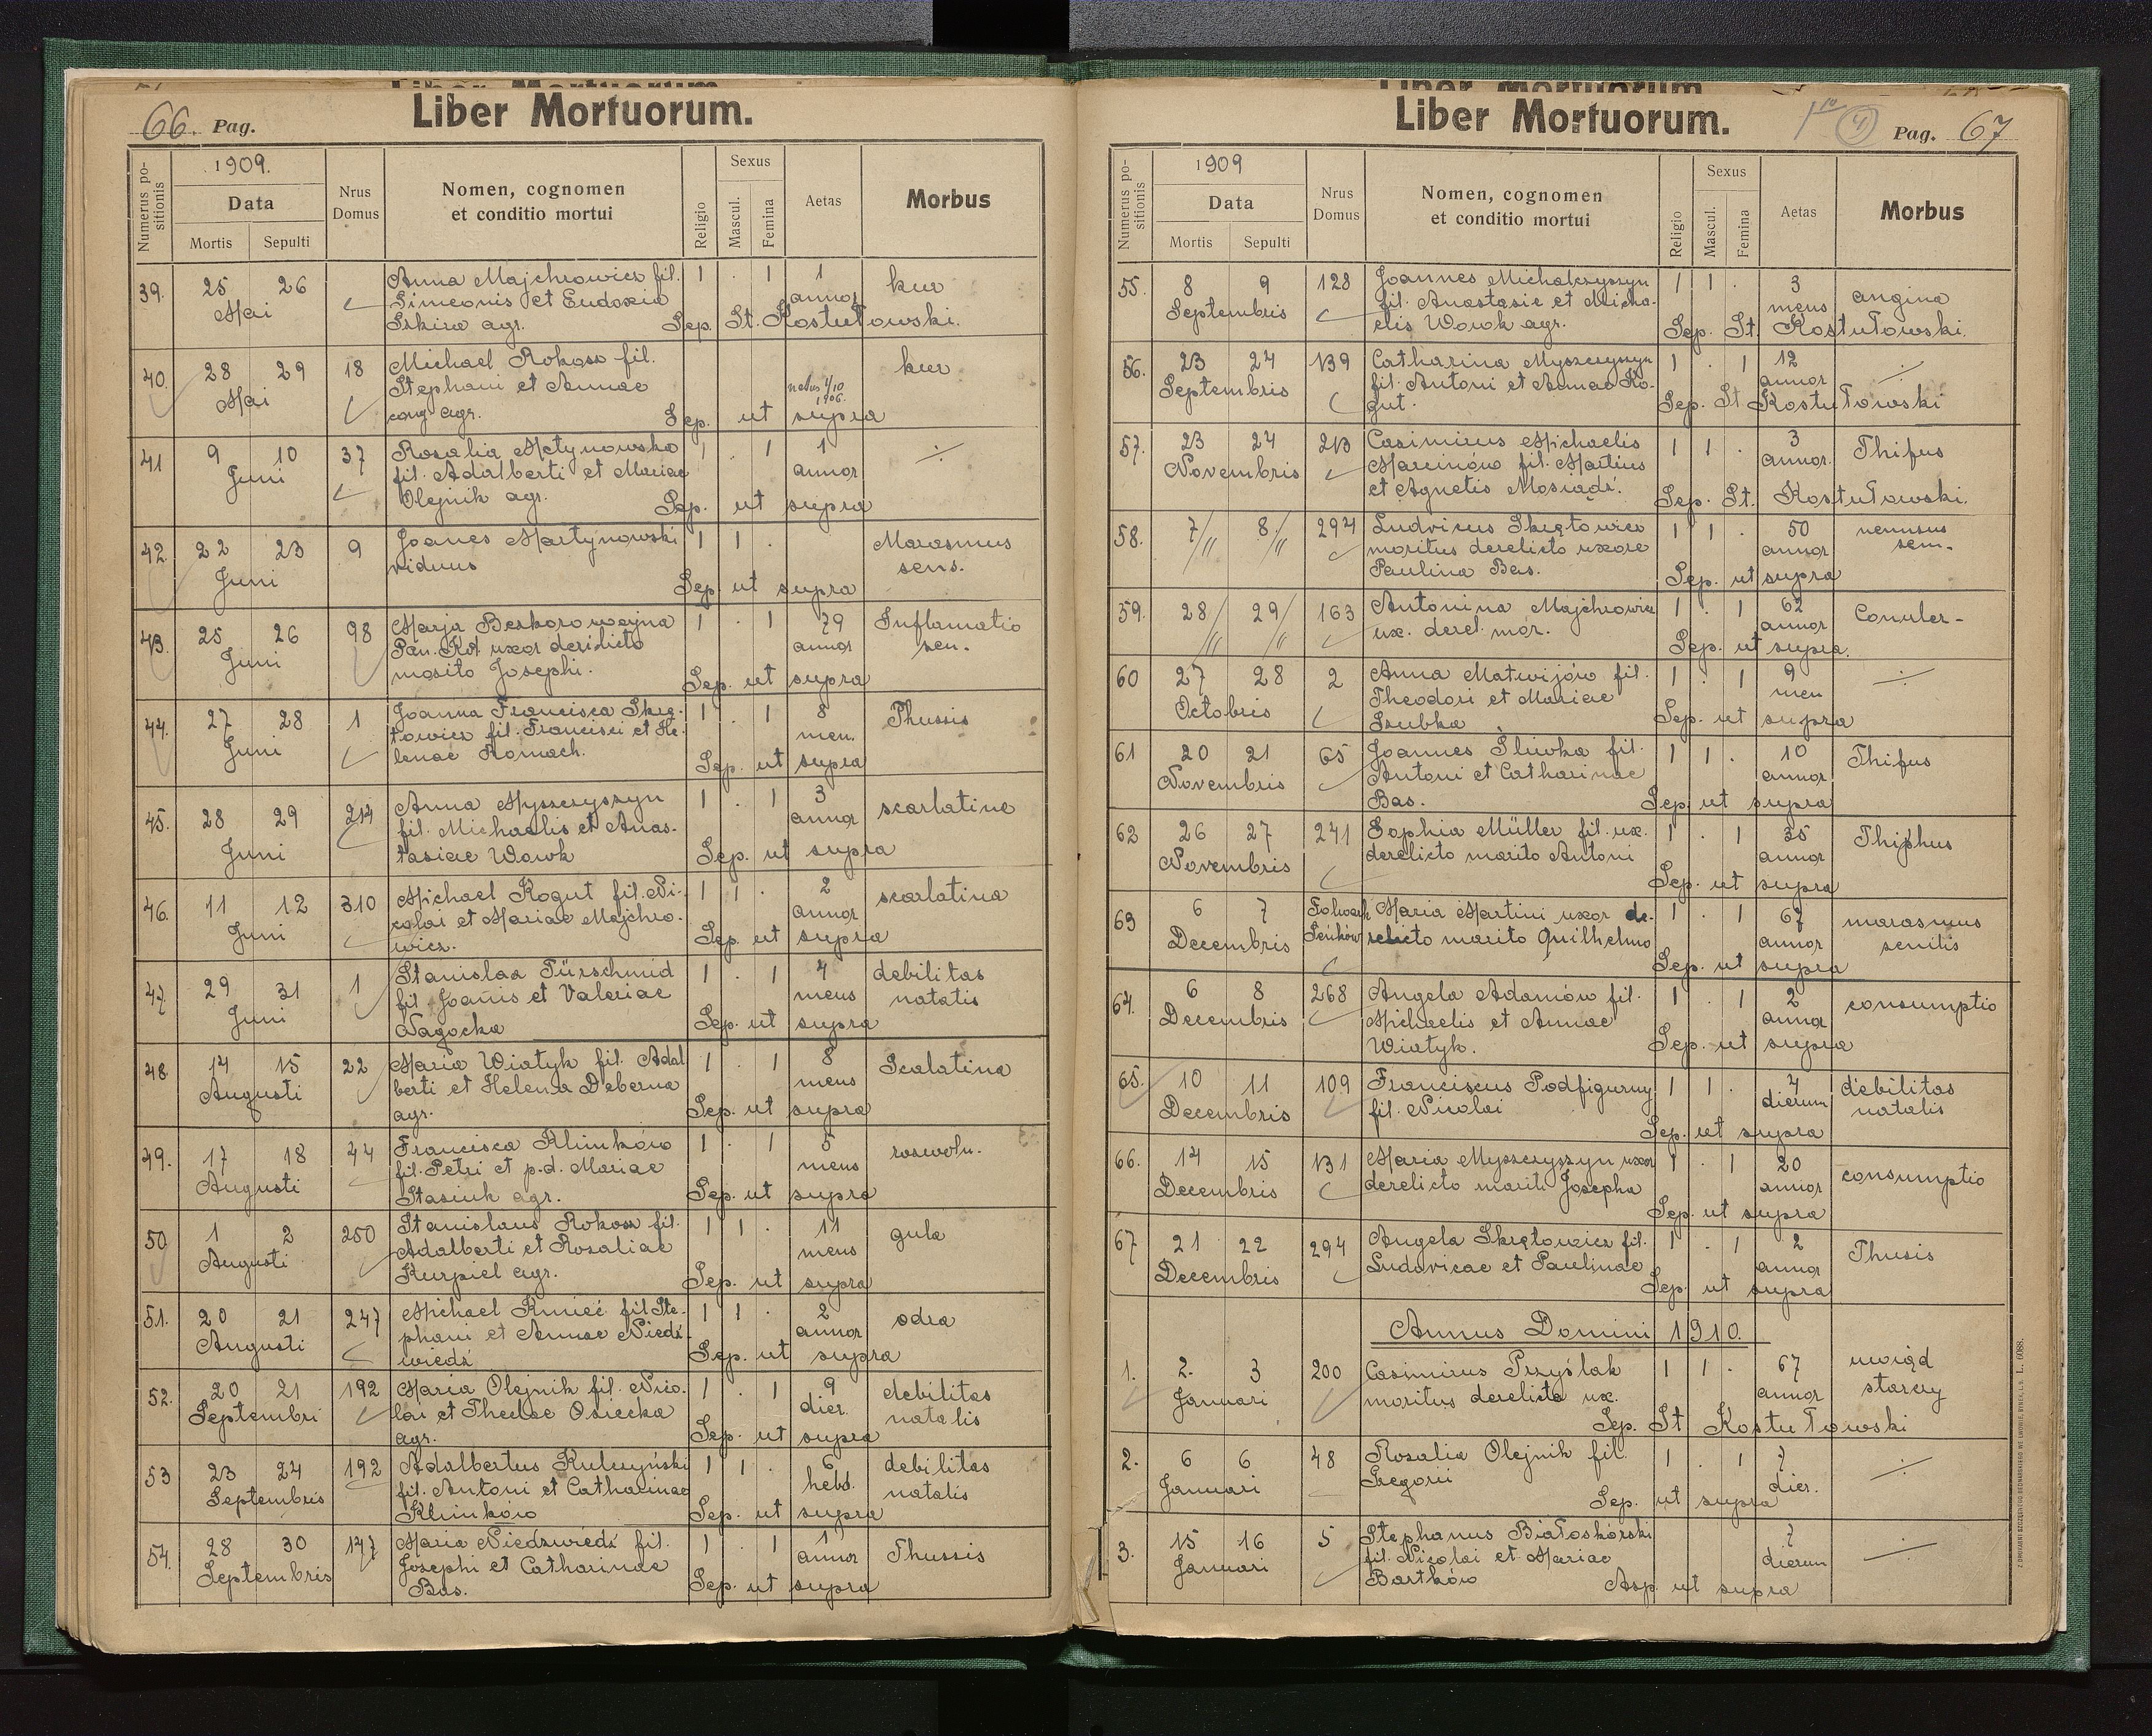 66. Pag.
Liber Mortuorum.
Numerus positionis
1909.
Data
Mortis Sepulti
Nrus Domus
Nomen, cognomen
et conditio mortui
Religio
Sexus
Mascul.
Femina
Aetas
Morbus
39. 25 26 Anna Majchrowicz fil. 1 . 1 1 kur
Mai Simeonis et Eudoxia annor
agr. Sep. St. Kostutowski.
40. 28 29 18 Michael Rokosz fil. kur
Mai Stephani et Annae natus 1/10
agr. 1906.
Sep. ut supra
41 9 10 37 Rosalia Matynowska 1 . 1 1 ÷
Juni fil. Adalberti et Mariae annor
Olejnik agr. Sep. ut supra
42. 22 23 9 Joanes Martynowski 1 1 . Marasmus
Juni viduus sens.
Sep. ut supra
43. 25 26 98 Marja Beskorowajna 1 . 1 79 Inflamatio
Juni Pan. Kot uxor derilicto annor sen.
mosito Josephi. Sep. ut supra
44. 27 28 1 Joanna Francisca Skrę- 1 . 1 8 Thussis
Juni towicz fil. Francisci et He- men.
lenae Romach. Sep. ut supra
45. 28 29 214 Anna Myszczyszyn 1 . 1 3 scarlatine
Juni fil. Michaelis et Anas- annor
tasiae Wowk Sep. ut supra
46. 11 12 310 Michael Kogut fil. Ni- 1 1 . 2 scarlatina
Juni colai et Mariae Majchro- annor
wicz. Sep. ut supra
47. 29 31 1 Stanislaa Türschmid 1 . 1 4 debilitas
Juni fil. Joanis et Valeriae mens natatis
Nagocka Sep. ut supra
48. 14 15 22 Maria Wiatyk fil. Adal 1 . 1 8 Scalatina
Augusti berti et Helena Deberna mens
agr. Sep. ut supra
49. 17 18 44 Francisca Klimków 1 . 1 5
Augusti fil. Petri et p.d. Mariae mens
Stasiuk agr. Sep. ut supra
50 1 2 250 Stanislaus Rokosz fil. 1 1 . 11 gula
Augusti Adalberti et Rosaliae mens
Kurpiel agr. Sep. ut supra
51. 20 21 247 Michael Kmieć fil Ste- 1 1 . 2 odra
Augusti phani et Annae Niedź- annor
wiedź Sep. ut supra
52. 20 21 192 Maria Olejnik fil. Nico- 1 . 1 9 debilitas
Septembri lai et Theclae Osiecka dier. natalis
agr. Sep. ut supra
53 23 24 192 Adalbertus Kulczyński 1 1 . 6 debilitas
Septembris fil. Antoni et Catharinae hebd. natalis
Klimków Sep. ut supra
54. 28 30 147 Maria Niedzwiedź fil. 1 . 1 1 Thussis
Septembris Josephi et Catharinae annor
Bas. Sep. ut supra
Liber Mortuorum.
4
Pag. 67
Numerus positionis
1909
Data
Mortis Sepulti
Nrus Domus
Nomen, cognomen
et conditio mortui
Religio
Sexus
Mascul.
Femina
Aetas
Morbus
55. 8 9 128 Joannes Michalczyszyn 1 1 . 3 angina
Septembris fil. Anastasie et Micha- mens
elis Wowk agr. Sep. St. Kostutowski.
56. 23 24 139 Catharina Myszczyszyn 1 . 1 12 ÷
Septembris fil. Antoni et Annae Ko- annor
gut. Sep. St Kostutowski
57. 23 24 213 Casimirus Michaelis 1 1 . 3 Thifus
Novembris Marcinów fil. Martius annor.
et Agnetis Mosiądź. Sep. St. Kostutowski.
58. 7/11 8./11 294 Ludvicus Skrętowicz 1 1 . 50
moritus derelicto uxore annor sem-
Paulina Bas. Sep. ut supra
59. 28/11 29/11 163 Antonina Majchrowicz 1 . 1 62
ux. derel. mor. annor
Sep. ut supra.
60 27 28 2 Anna Matwijów fil. 1 . 1 9 ÷
Octobris Theodori et Mariae men
Szubka Sep. ut supra
61 20 21 65 Joannes Śliwka fil. 1 1 . 10 Thifus
Novembris Antoni et Catharinae annor
Bas. Sep. ut supra
62 26 27 241 Sophia Müller fil. ux. 1 . 1 35 Thiphus
Novembris derelicto marito Antoni annor
Sep. ut supra
63 6 7 Folwark Maria Martini uxor de- 1 . 1 67 marasmus
Decembris Sieńków relicto marito Quilhelmo annor senilis
Sep. ut supra
64. 6 8 268 Angela Adamów fil. 1 . 1 2 consumptio
Decembris Michaelis et Annae annor
Wiatyk. Sep. ut supra
65. 10 11 109 Franciscus Podfigurny 1 1 . 4 debilitas
Decembris fil. Nicolai dierum natalis
Sep. ut supra
66. 14 15 131 Maria Myszczyszyn uxor 1 . 1 20 consumptio
Decembris derelicto mariti Josepha annor
Sep. ut supra
67 21 22 294 Angela Skrętowicz fil. 1 . 1 2 Thusis
Decembris Ludovicae et Paulinae annor
Sep. ut supra
Annus Domini 1910.
1. 2. 3 200 Casimirus Przyślak 1 1 . 67 uwiąd
Januari moritus derelicta ux. annor starczy
Sep. St Kostutowski
2. 6 6 48 Rosalia Olejnik fil. 1 . 1 7 ÷
Januari Gregorii dier.
Sep. ut supra
3. 15 16 5 Stephanus Białoskórski 7 ÷
Januari fil. Nicolai et Mariae dierum
Bartków Asp ut supra